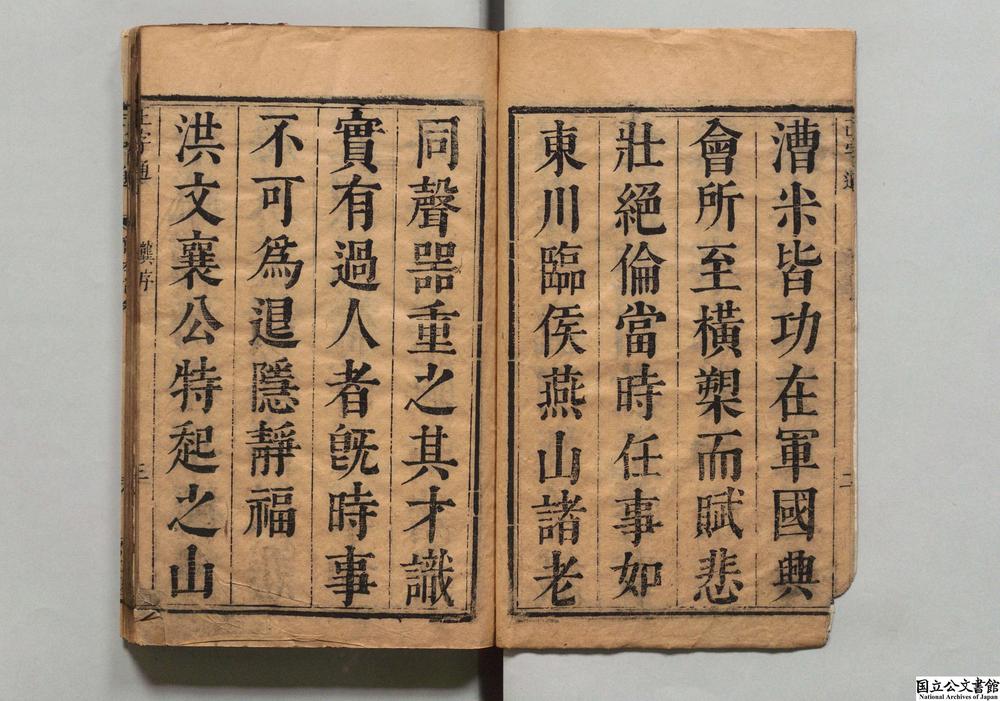 漕米皆功在軍國典
會所至橫槊而賦悲
壯絕倫當時任事如
東川臨侯燕山諸老
同聲器重之其才識
實有過人者旣時事
不可爲退隱靜福
洪文襄公特起之山
正字通
龔序
三
国立公文書館
National Archives of Japan